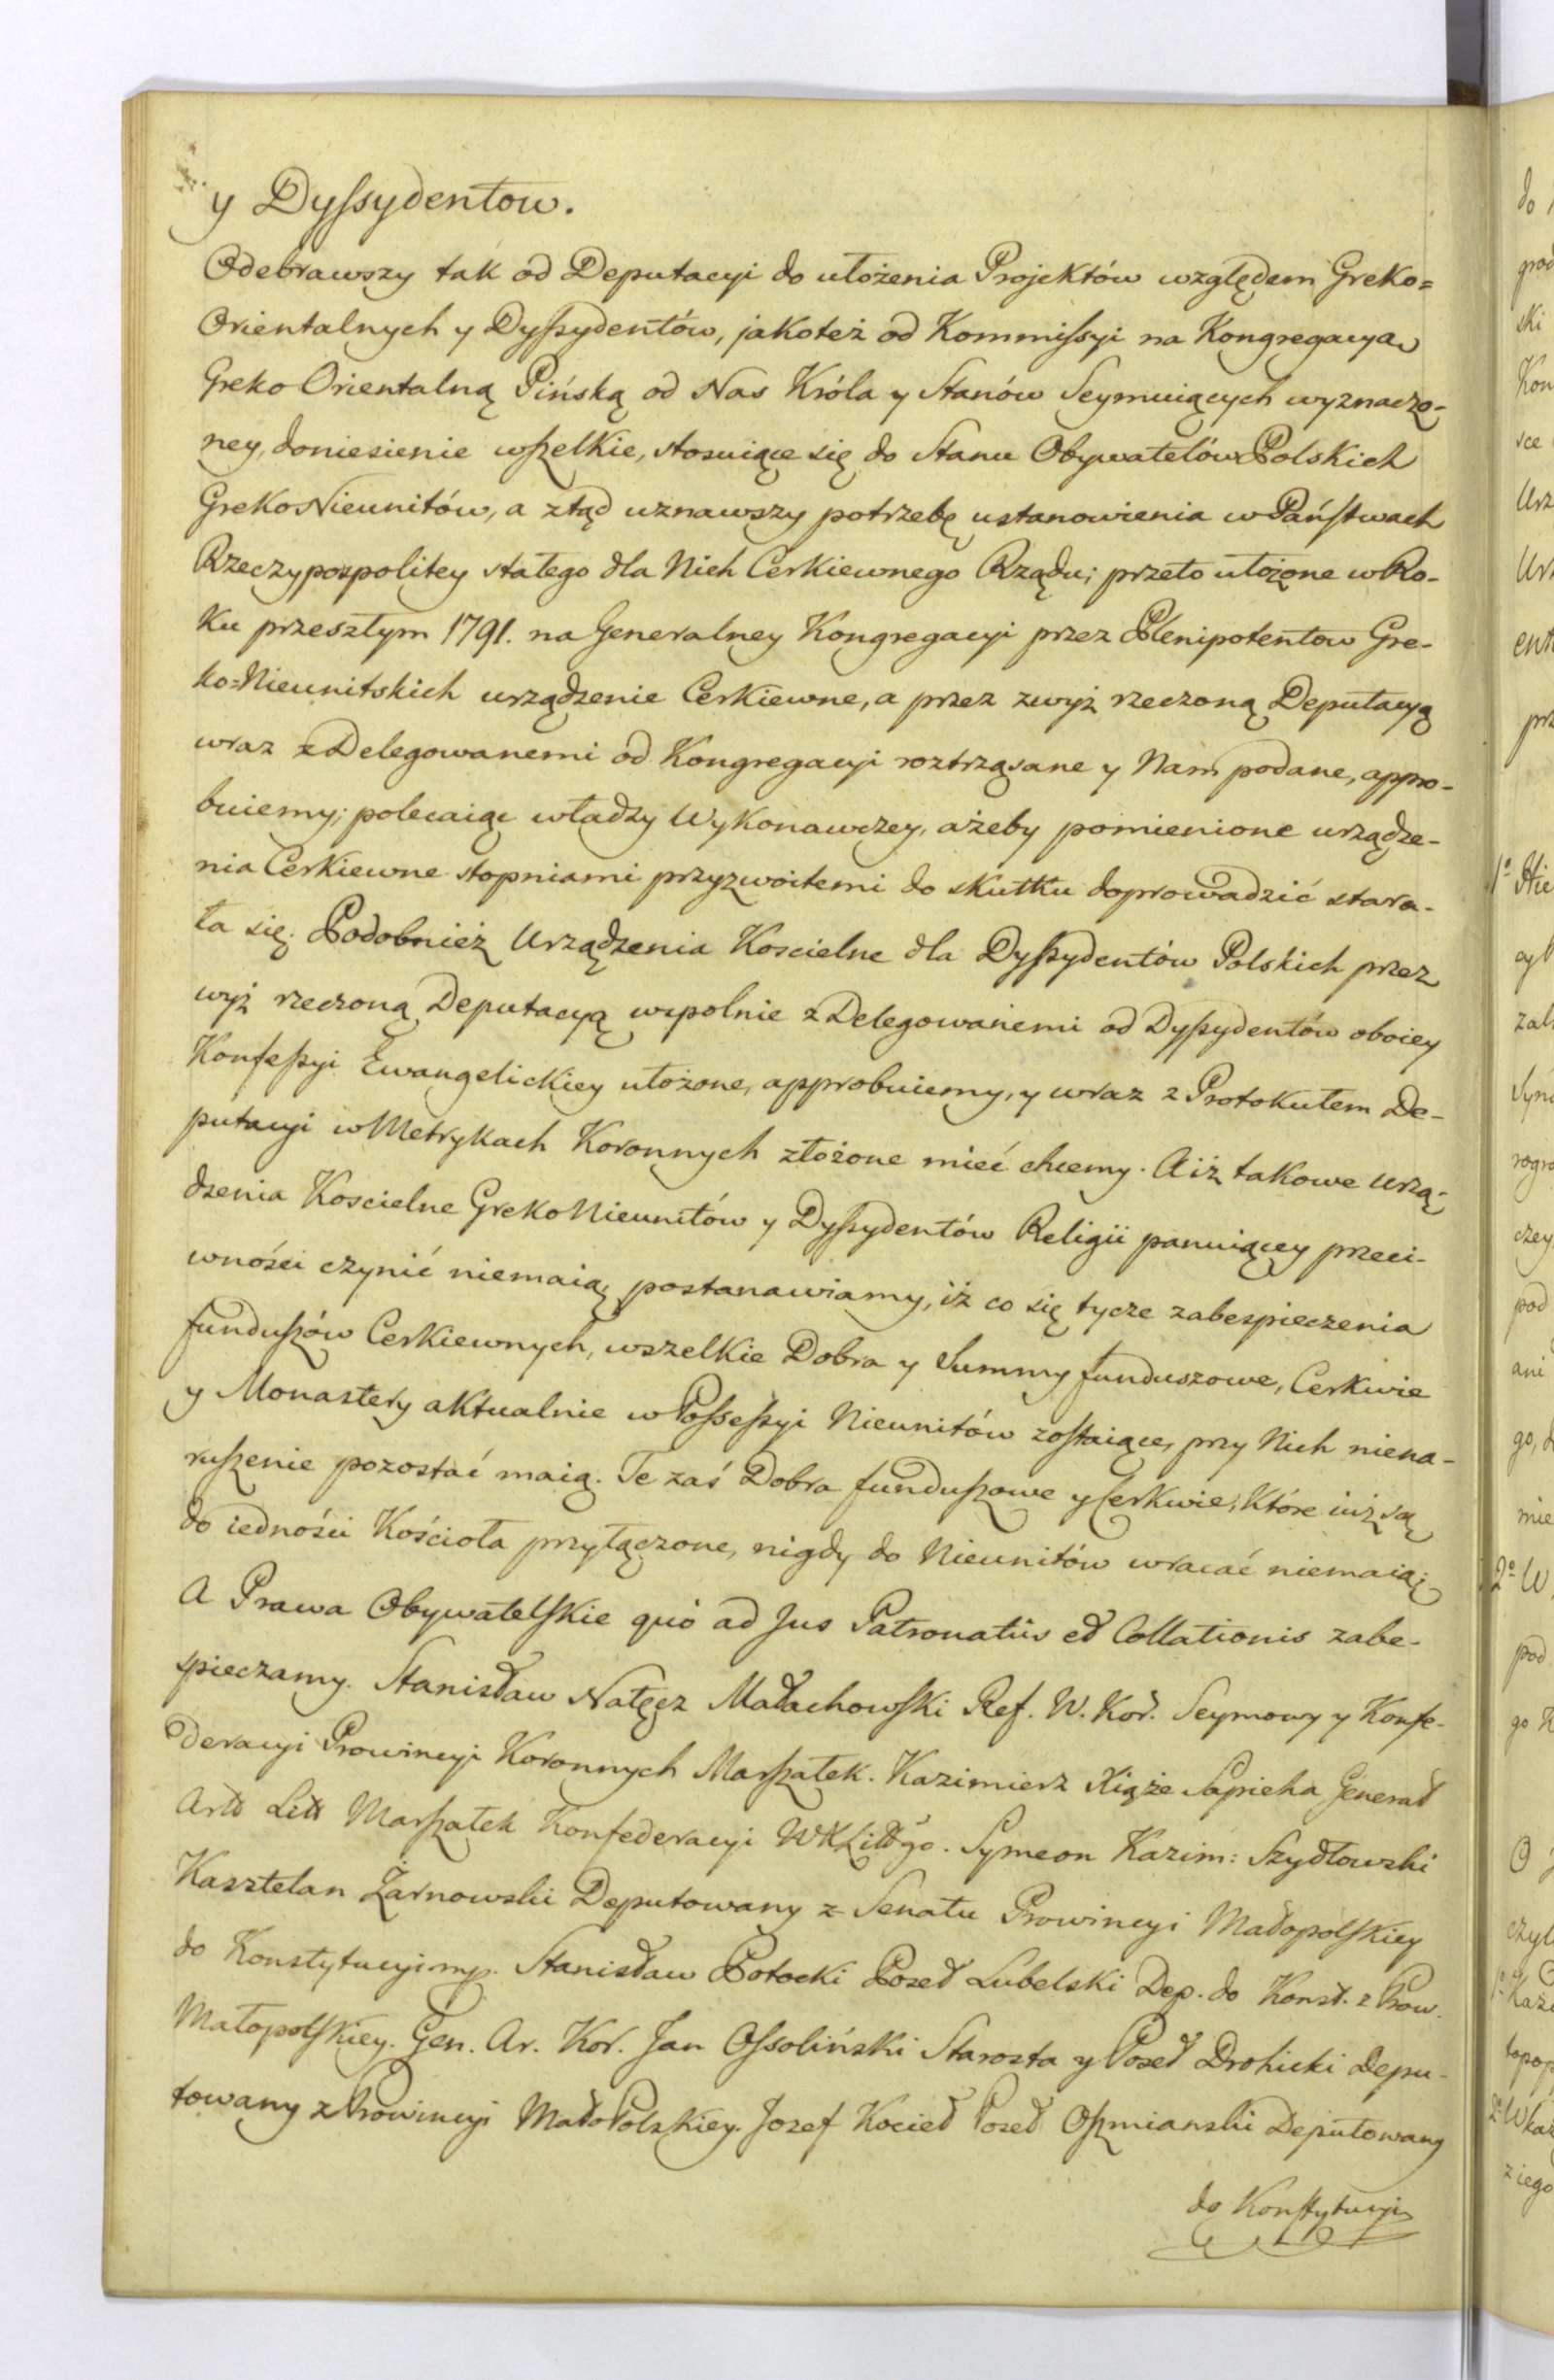 y Dyſsydentow.
Odebrawszy tak od Deputacyi do ułożenia Projektów względem Greko=
Orientalnych y Dyſsydentów, jakoteż od Kommiſsyi na Kongregacyą
Greko Orientalną Pińską od Nas Króla y Stanów Seymuiących wyznaczo-
ney, doniesienie wſzelkie, stosuiące się do Stanu Obywatelów Polskich
Greko Nieunitów, a ztąd uznawszy potrzebę ustanowienia w Pańſtwach
Rzeczypospolitey stałego dla Nich Cerkiewnego Rządu; przeto ułożone w Ro-
ku przeszłym 1791. na Generalney Kongregacyi przez Plenipotentow Gre-
ko=Nieunitskich urządzenie Cerkiewne, a przez zwyż rzeczoną Deputacyą
wraz z Delegowanemi od Kongregacyi roztrząsane y Nam podane, appro-
buiemy; polecaiąc władzy Wykonawczey, ażeby pomienione urządze-
nia Cerkiewne stopniami przyzwoitemi do skutku doprowadzić stara-
ła się. Podobnież Urządzenia Koscielne dla Dyſsydentów Polskich przez
wyż rzeczoną Deputacyą wspolnie z Delegowanemi od Dyſsydentów oboiey
Konfeſsyi Ewangelickiey ułożone, approbuiemy, y wraz z Protokułem De-
putacyi w Metrykach Koronnych złożone mieć chcemy. A iż takowe urzą-
dzenia Koscielne Greko Nieunitów y Dyſsydentów Religii panuiącey przeci-
wności czynić niemaią, postanawiamy, iż co się tycze zabespieczenia
funduſzów Cerkiewnych, wszelkie Dobra y Summy funduszowe, Cerkwie
y Monastery aktualnie w Poſseſsyi Nieunitów zoſtaiące, przy Nich niena-
ruſzenie pozostać maią. Te zaś Dobra funduſzowe y Cerkwie, które iuż są
do iedności Kościoła przyłączone, nigdy do Nieunitów wracać niemaią;
A Prawa Obywatelſkie quó ad Jus Patronatûs et Collationis zabe-
spieczamy. Stanisław Nałęcz Małachowſki Ref. W. Kor. Seymowy y Konfe-
deracyi Prowincyi Koronnych Marſzałek. Kazimierz Xiąże Sapieha Generał
Artt Litt Marſzałek Konfederacyi WXLittgo. Symeon Kazim: Szydłowski
Kasztelan Żarnowski Deputowany z Senatu Prowincyi Małopolſkiey
do Konstytucyi mp. Stanisław Potocki Poseł Lubelski Dep. do Konst. z Prow.
Małopolſkiey. Gen. Ar. Kor. Jan Oſsoliński Starosta y Poseł Drohicki Depu-
towany z Prowincyi MałoPolskiey. Jozef Kociełł Poseł Oſzmianski Deputowany
do Konſtytucyi